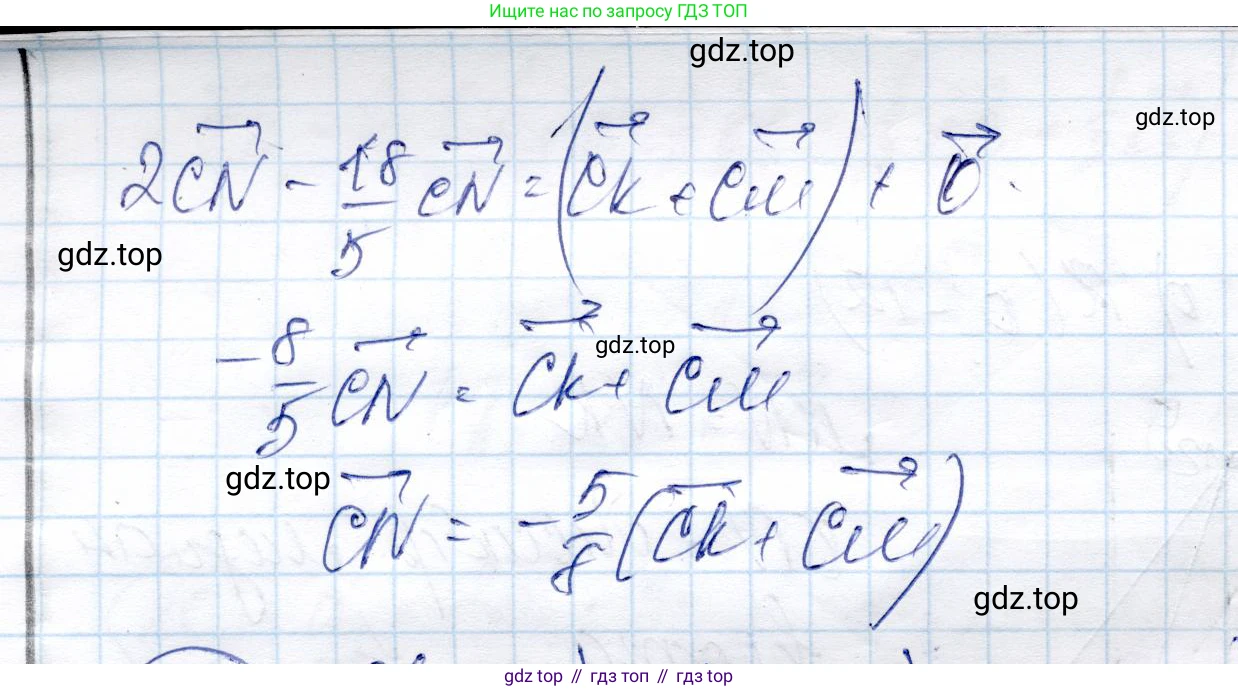 Ищите нас по запросу ГДЗ ТОП
gdz.top
gdz.top
2CN - 18/5 CN = (CK + CM) + 0
gdz.top
-8/5 CN = CK + CM
gdz.top
gdz.top
CN = -5/8 (CK + CM)
gdz.top
gdz.top // гдз топ // gdz.top